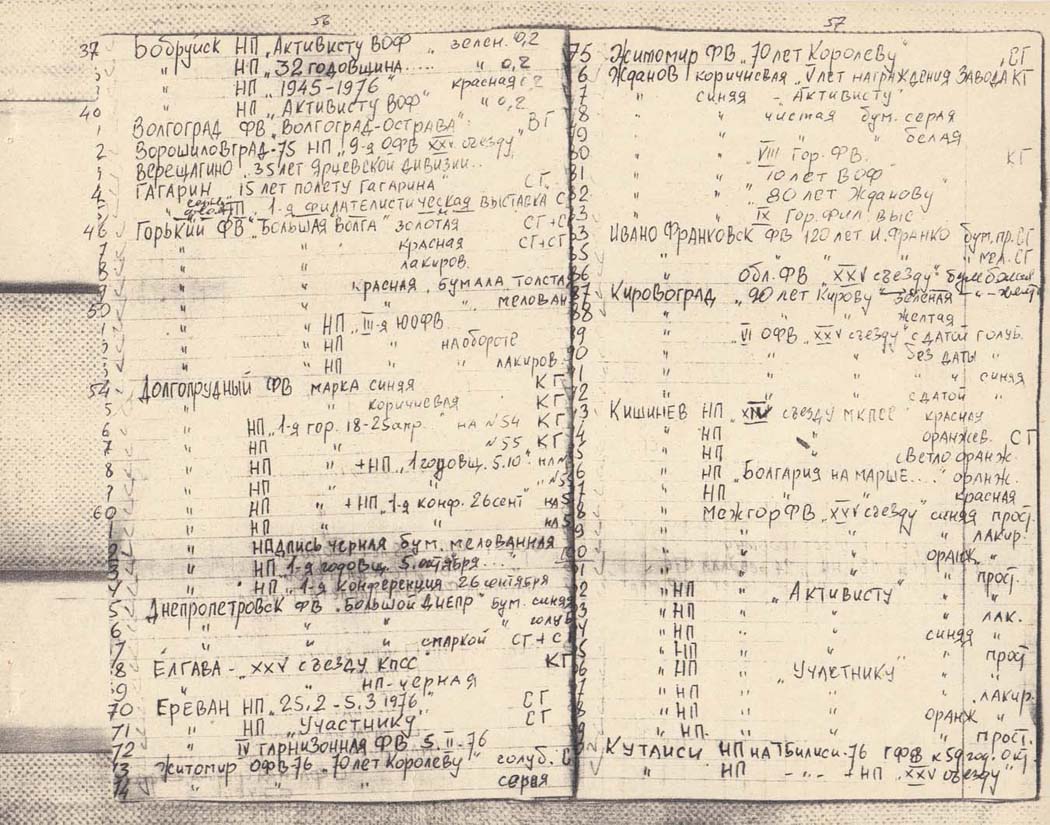 56
37 Бобруйск НП „Активисту ВОФ" зелен. 0,2
" НП „32 годовщина..... " 0,2
" НП „1945-1976" красная 0,2
40 " НП „Активисту ВОФ" " 0,2
1 Волгоград ФВ „Волгоград-Острава" ВГ
2 Ворошиловград-75 НП „9-я ОФВ XXV съезду"
3 Верещагино „35 лет Ярцевской дивизии...
4 Гагарин „15 лет полету Гагарина" СГ
5 " НП „1-я филателистическая выставка С
46 Горький ФВ „Большая Волга" золотая СГ+С
7 " " красная СГ+СГ
8 " " лакиров.
9 " " красная, бумага толста
50 " " " мелован
1 " " НП „III-я ЮОФВ
2 " " НП " на обороте
3 " " НП " " лакиров.
54 Долгопрудный ФВ марка синяя КГ
5 " " коричневая КГ
6 " НП „1-я гор. 18-25 апр. на №54 КГ
7 " НП " №55 КГ
8 " НП " +НП „1 годовщ. 5.10"
9 " НП " " №55
60 " НП " +НП „1-я конф. 26 сент на 5
1 " НП " " на 5
2 " Надпись черная бум. мелованная
3 " НП „1-я годовщ. 5 октября...
4 " НП „1-я конференция 26 сентября
5 Днепропетровск ФВ „Большой Днепр" бум. синяя
6 " " " голуб
7 " " с маркой СГ+С
8 Елгава - „XXV съезду КПСС" КГ
9 " " НП-черная
70 Ереван НП „25.2 - 5.3 1976" СГ
71 " НП „Участнику" СГ
72 " IV гарнизонная ФВ 5.II-76
73 Житомир ОФВ-76 „70 лет Королеву" голуб. С
74 " " " серая
57
75 Житомир ФВ „70 лет Королеву" СГ
6 Жданов коричневая „V лет награждения завода КГ
7 " синяя - „Активисту"
8 " " чистая бум. серая
79 " " " " белая
80 " „VIII Гор. ФВ. КГ
81 " „10 лет ВОФ
82 " „80 лет Жданову"
83 " „IX Гор. фил. выс
Ивано Франковск ФВ 120 лет И. Франко бум. пр. СГ
85 " " " " мел. СГ
86 " Обл. ФВ „XXV съезду" бум белая
87 Кировоград „90 лет Кирову" зеленая
88 " " желтая
89 " „VI ОФВ „XXV съезду" с датой голуб.
90 " " " без даты "
91 " " " " синяя
92 " " " с датой "
93 Кишинев НП „XIV съезду МКПСС" красная
94 " НП " оранжев. СГ
95 " НП " светло оранж.
96 " НП „Болгария на марше...." оранж.
97 " НП " " красная
98 " Межгор ФВ „XXV съезду" синяя прост.
99 " " " " лакир.
" " " оранж "
" " " " прост.
2 " НП " „Активисту" "
3 " НП " " лак.
4 " НП " " синяя "
5 " НП " " прост
6 " НП " „Участнику" "
7 " НП " " лакир.
8 " НП " " оранж "
9 " НП. " " прост.
Кутаиси НП на Тбилиси-76 ГФВ к 59 год. Окт.
" НП -„- +НП „XXV съезду"